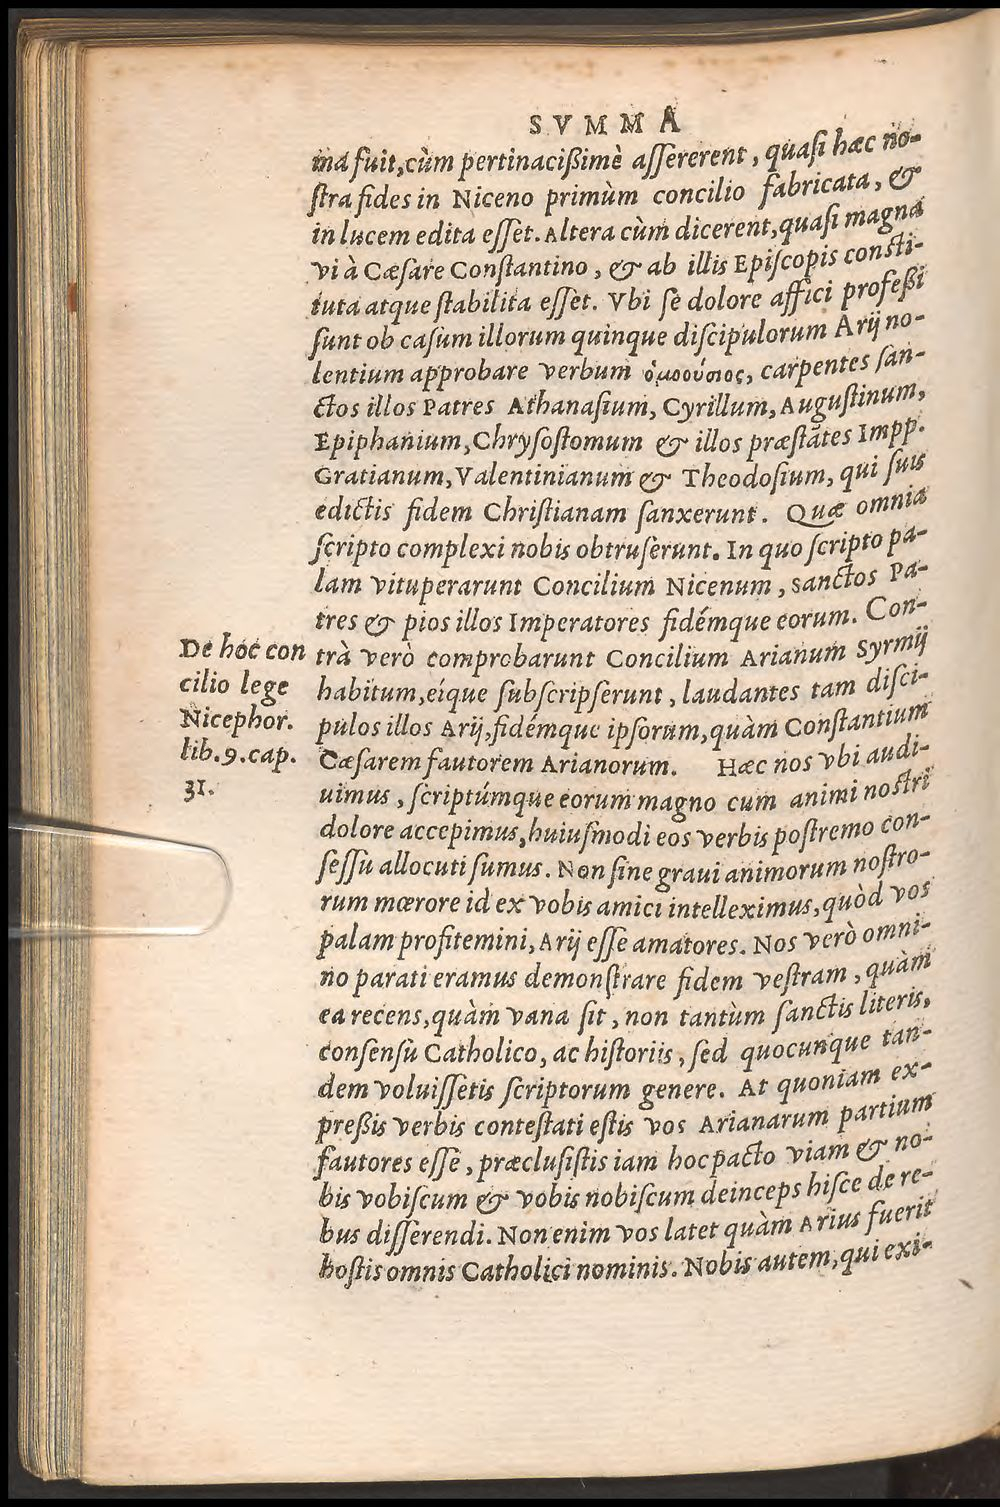 SVMMA
ma fuit, cùm pertinacißimè aſſererent, quaſi hæc no-
ſtra fides in Niceno primùm concilio fabricata, &
in lucem edita eſſet. Altera cùm dicerent, quaſi magna
vi à Cæſare Conſtantino, & ab illis Epiſcopis conſti-
tuta atque ſtabilita eſſet. Vbi ſe dolore affici profeßi
ſunt ob caſum illorum quinque diſcipulorum Arij no-
lentium approbare verbum ὁμοούσιος, carpentes ſan-
ctos illos Patres Athanaſium, Cyrillum, Auguſtinum,
Epiphanium, Chryſoſtomum & illos præſtãtes Impp.
Gratianum, Valentinianum & Theodoſium, qui ſuis
edictis fidem Chriſtianam ſanxerunt. Quæ omnia
ſcripto complexi nobis obtruſerunt. In quo ſcripto pa-
lam vituperarunt Concilium Nicenum, sanctos Pa-
tres & pios illos Imperatores fidémque eorum. Con-
trà verò comprobarunt Concilium Arianum Syrmij
habitum, eíque ſubſcripſerunt, laudantes tam diſci-
pulos illos Arij, fidémque ipſorum, quàm Conſtantium
Cæſarem fautorem Arianorum. Hæc nos vbi audi-
uimus, ſcriptúmque eorum magno cum animi noſtri
dolore accepimus, huiuſmodi eos verbis poſtremo con-
ſeſſu allocuti ſumus. Non ſine graui animorum noſtro-
rum mœrore id ex vobis amici intelleximus, quòd vos
palam profitemini, Arij eſſe amatores. Nos verò omni-
no parati eramus demonſtrare fidem veſtram, quàm
ea recens, quàm vana ſit, non tantùm ſanctis literis,
conſenſu Catholico, ac hiſtoriis, ſed quocunque tan-
dem voluiſſetis ſcriptorum genere. At quoniam ex-
preßis verbis conteſtati eſtis vos Arianarum partium
fautores eſſe, præcluſiſtis iam hoc pacto viam & no-
bis vobiſcum & vobis nobiſcum deinceps hiſce de re-
bus diſſerendi. Non enim vos latet quàm Arius fuerit
hoſtis omnis Catholici nominis. Nobis autem, qui exi-
De hoc con
cilio lege
Nicephor.
lib. 9. cap.
31.